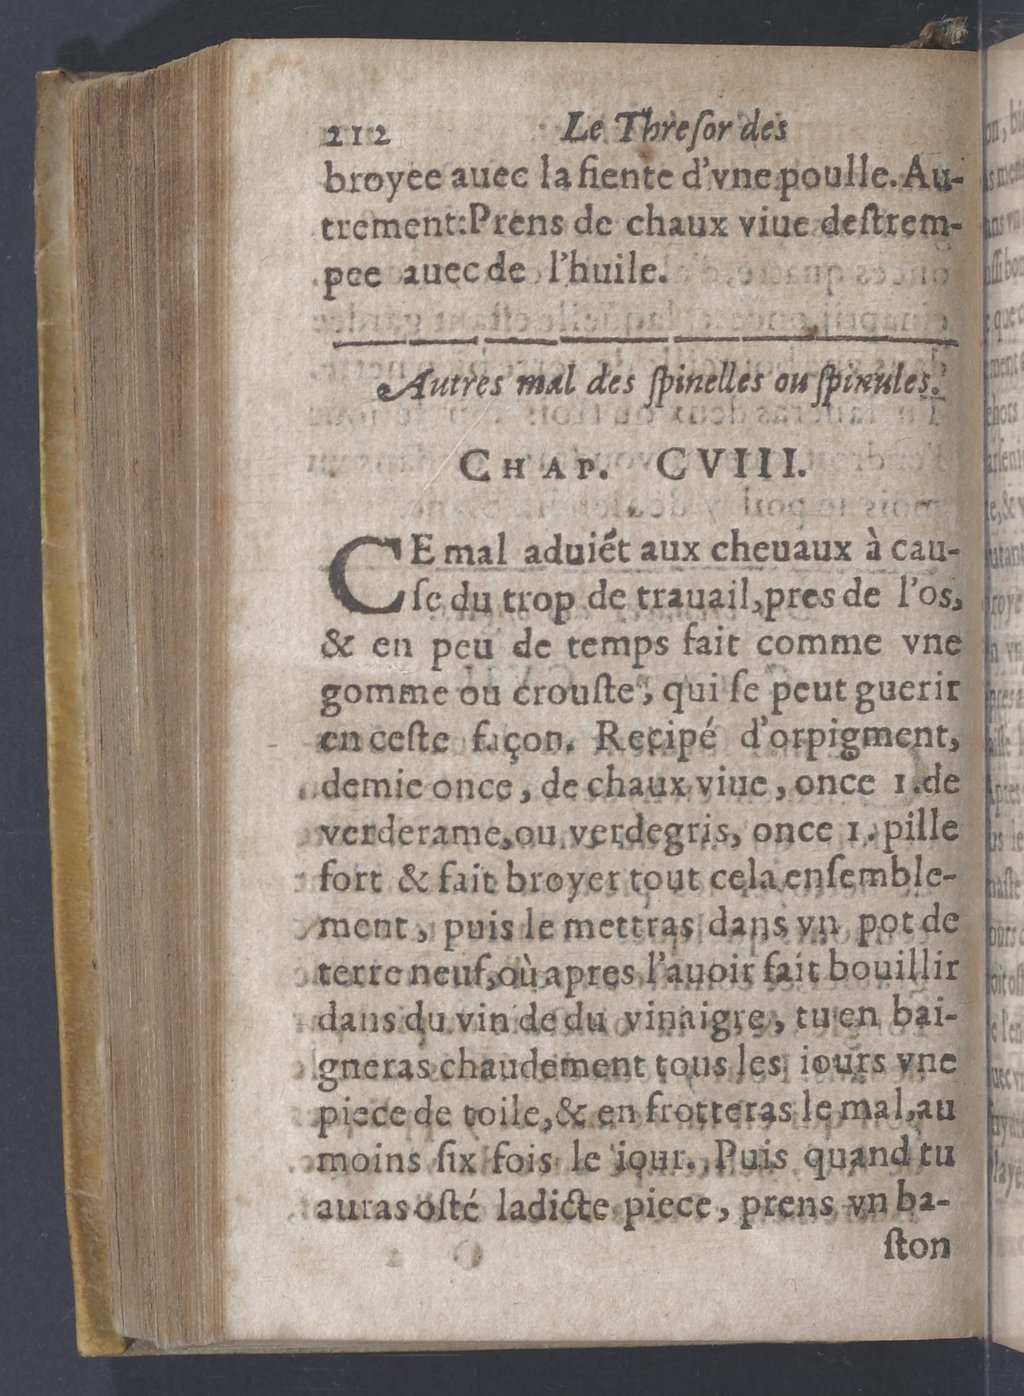 212 Le Threſor des
broyee auec la fiente d'vne poulle. Au-
trement: Prens de chaux viue deſtrem-
pee auec de l'huile.
Autres mal des ſpinelles ou ſpinules.
CHAP. CVIII.
CE mal aduiẽt aux cheuaux à cau-
ſe du trop de trauail, pres de l'os,
& en peu de temps fait comme vne
gomme ou crouſte, qui ſe peut guerir
en ceſte façon. Recipé d'orpigment,
demie once, de chaux viue, once 1. de
verderame, ou verdegris, once 1. pille
fort & fait broyer tout cela enſemble-
ment, puis le mettras dans vn pot de
terre neuf, où apres l'auoir fait bouillir
dans du vin de du vinaigre, tu en bai-
gneras chaudement tous les iours vne
piece de toile, & en frotteras le mal, au
moins ſix fois le iour. Puis quand tu
auras oſté ladicte piece, prens vn ba-
ſton